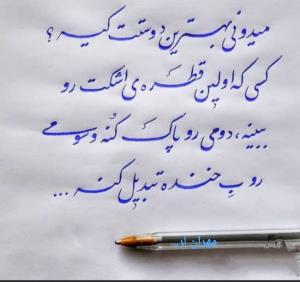 میدونی بهترین دوستت کیه ؟
کسی که اولین قطره ی اشکت رو
ببینه، دومی رو پاک کنه و سومی
رو بِ خنده تبدیل کنه ...